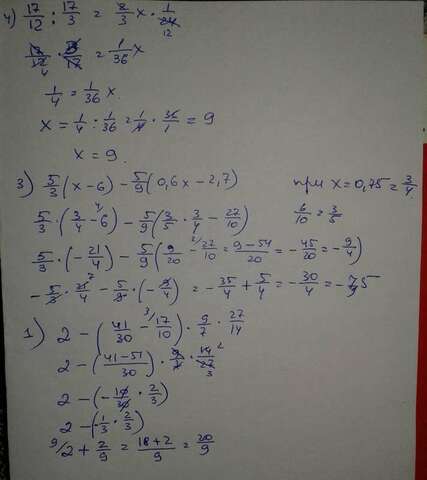 4) 17/12 : 17/3 = 2/3 x · 1/24 12
17/12 4 · 3/17 = 1/36 x
1/4 = 1/36 x.
x = 1/4 : 1/36 = 1/4 · 36/1 = 9
x = 9.
3) 5/3 (x - 6) - 5/9 (0,6x - 2,7) при x = 0,75 = 3/4.
5/3 · (3/4 - 6) - 5/9 (3/5 · 3/4 - 27/10) 6/10 = 3/5
5/3 · (-21/4) - 5/9 (9/20 - 27/10 = 9-54/20 = -45/20 = -9/4)
-5/3 · 21/4 - 5/9 · (-9/4) = -35/4 + 5/4 = -30/4 = -7,5
1) 2 - (41/30 - 17/10) · 9/7 : 27/14
2 - (41-51/30) · 9/7 · 14/27
2 - (-10/30 · 2/3)
2 - (-1/3 · 2/3)
2 + 2/9 = 18+2/9 = 20/9